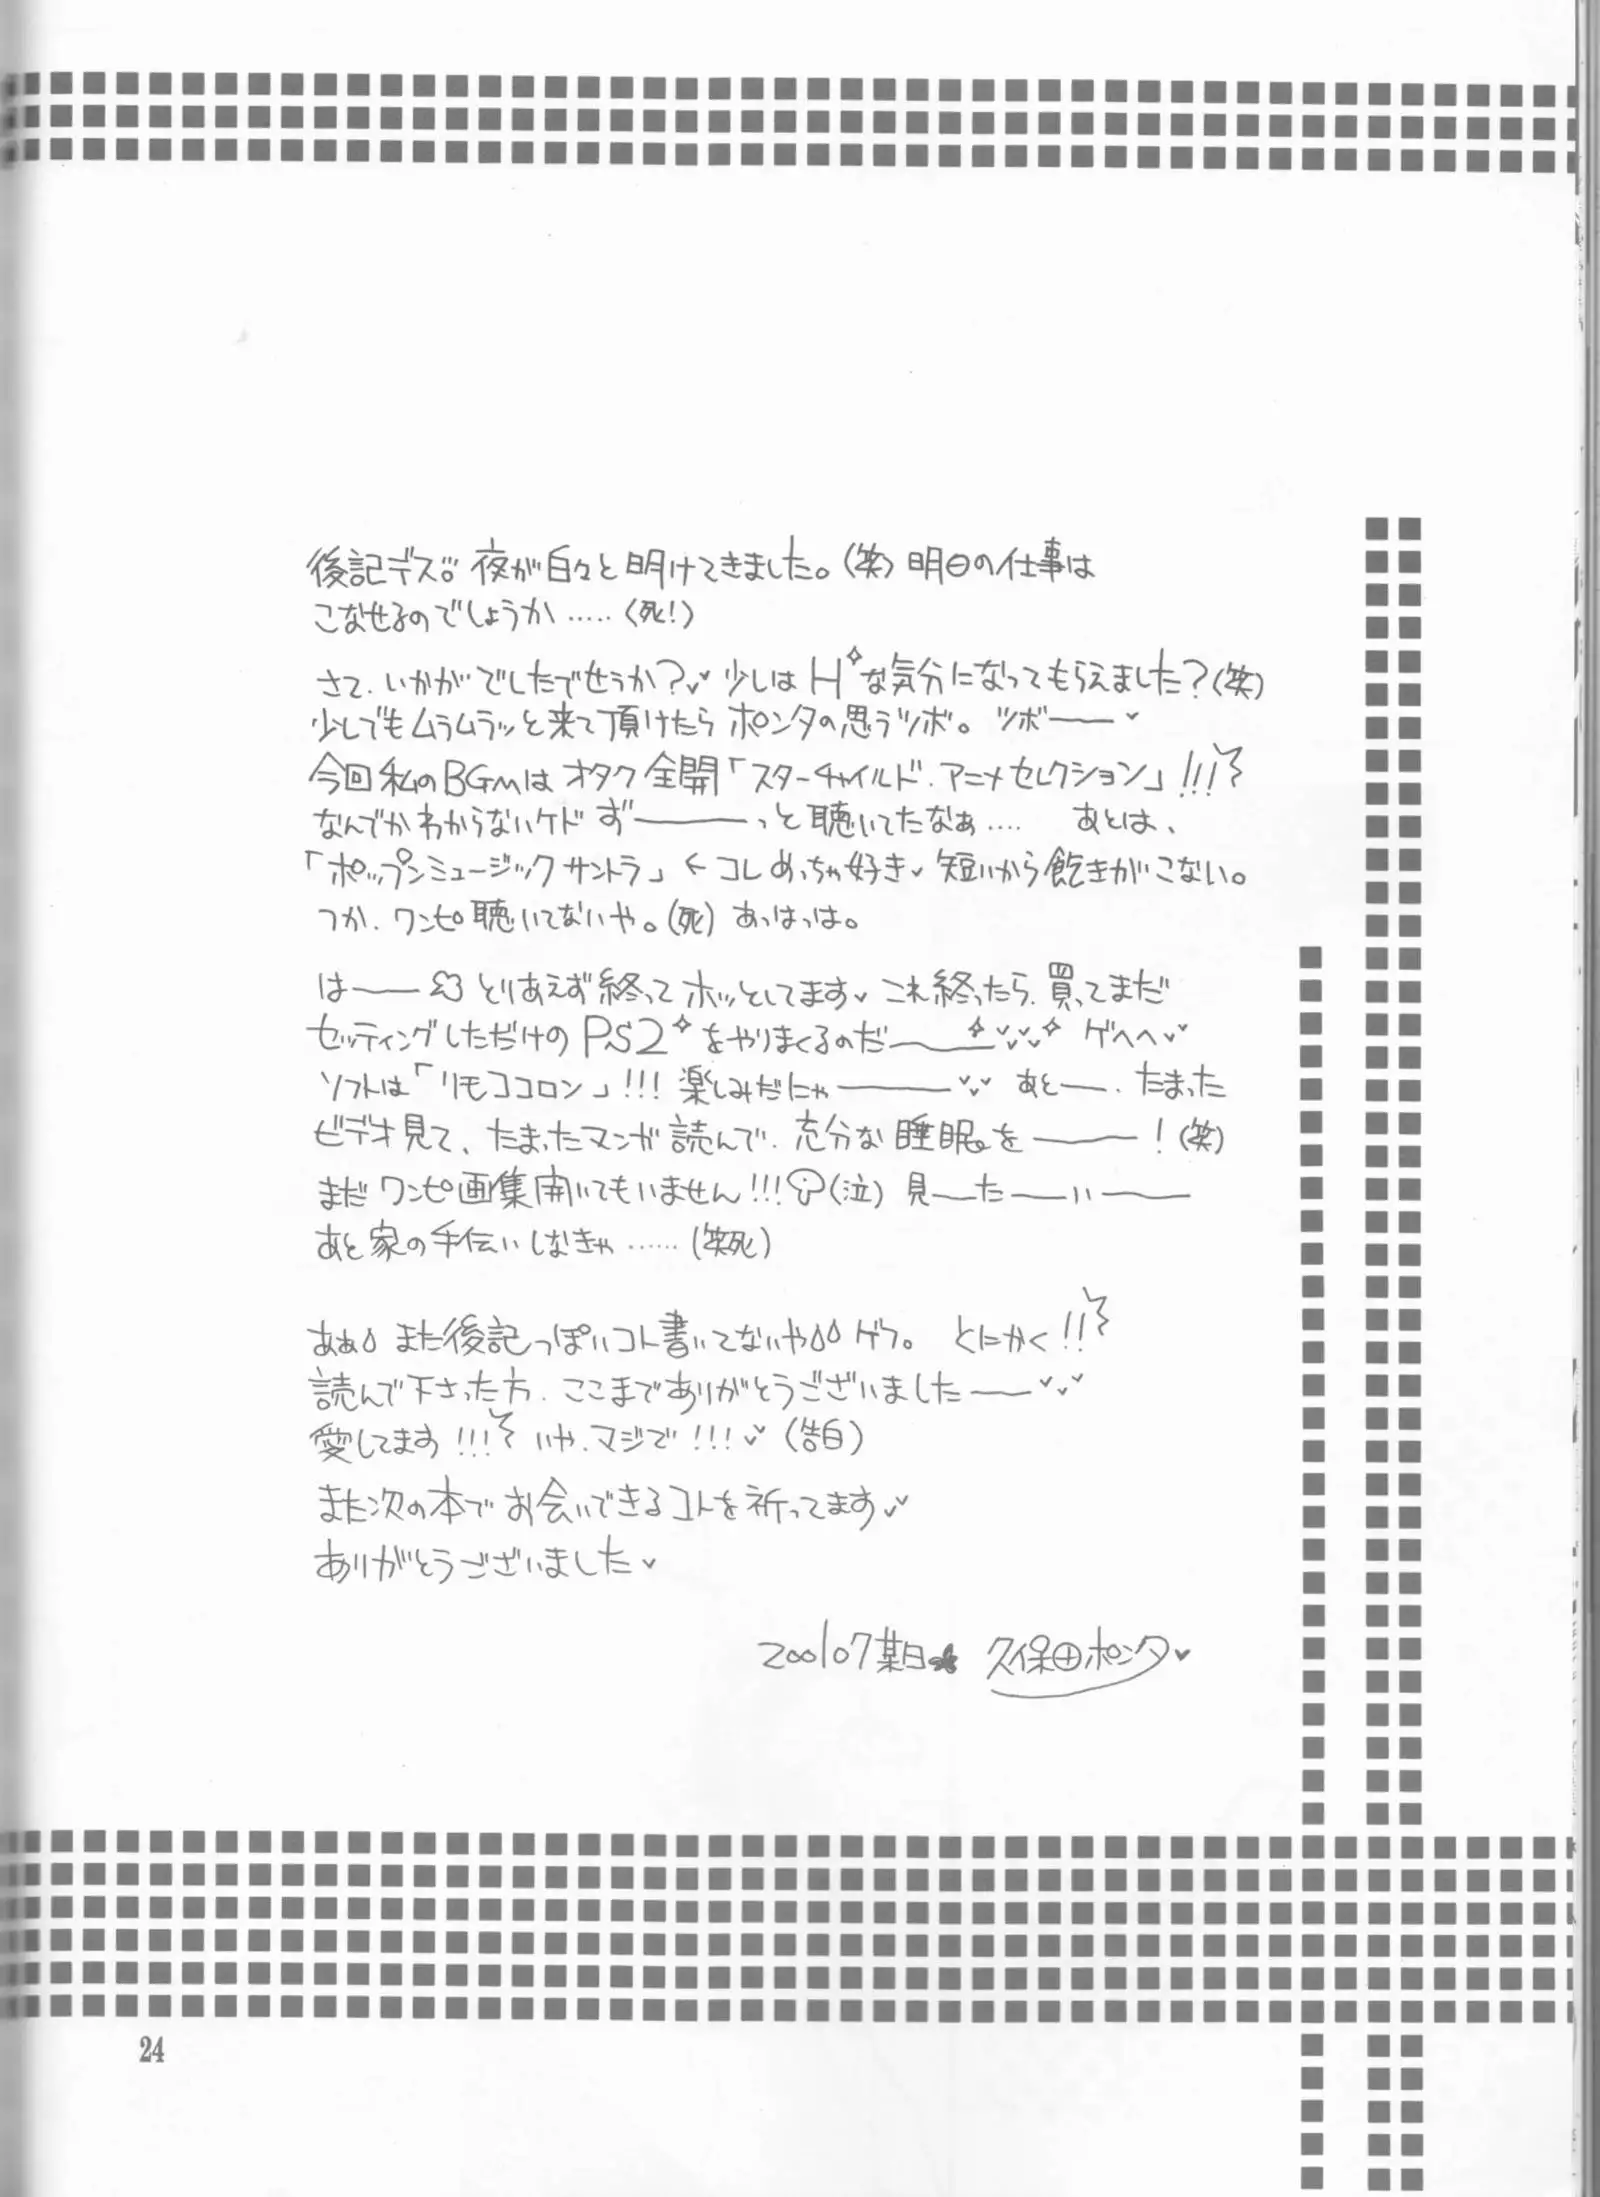 後記デス。夜が白々と明けてきました。(笑)明日の仕事は
こなせるのでしょうか……(死!)
さて、いかがでしたでせうか?♥少しはHな気分になってもらえました?(笑)
少しでもムラムラッと来て頂けたらポンタの思うツボ。ツボーー♥
今回私のBGMはオタク全開「スターチャイルド・アニメセレクション」!!!
なんでかわからないケドずーーーっと聴いてたなぁ…. あとは、
「ポップンミュージックサントラ」←コレめっちゃ好き♥短いから飽きがこない。
つか、ワンピ聴いてないや。(死)あっはっは。
はーー とりあえず終ってホッとしてます♥これ終ったら、買ってまだ
セッティングしただけのPS2をやりまくるのだーーー♥♥ ゲヘヘ♥
ソフトは「リモココロン」!!!楽しみだにゃーーー♥♥ あとー、たまった
ビデオ見て、たまったマンガ読んで、充分な睡眠をーーー!(笑)
まだワンピ画集開いてもいません!!!(泣)見ーたーいーー
あと家の手伝いしなきゃ……(笑死)
あぁ また後記っぽいコト書いてないや ゲフ。 とにかく!!
読んで下さった方、ここまでありがとうございましたーー♥♥
愛してます!!! いや、マジで!!!♥(告白)
また次の本でお会いできるコトを祈ってます♥
ありがとうございました♥
200107某日 久保田ポンタ♥
24